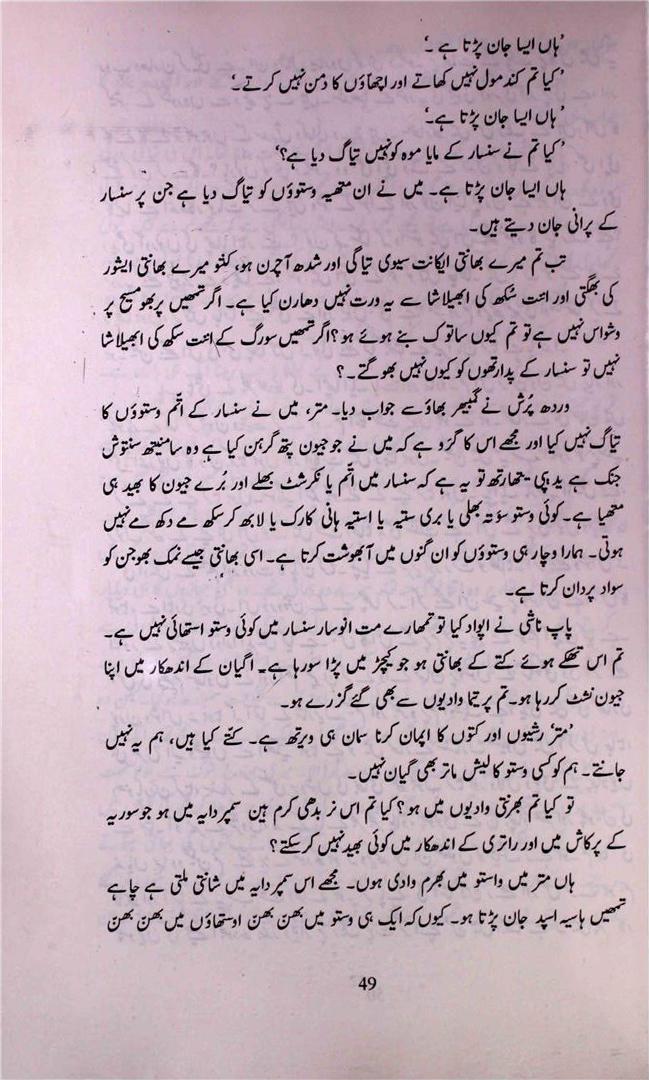 ’ہاں ایسا جان پڑتا ہے۔‘
’کیا تم کند مول نہیں کھاتے اور اچھاؤں کا دمن نہیں کرتے۔‘
’ہاں ایسا جان پڑتا ہے۔‘
’کیا تم نے سنسار کے مایا موہ کو نہیں تیاگ دیا ہے؟‘
ہاں ایسا جان پڑتا ہے۔ میں نے ان متھیہ وستوؤں کو تیاگ دیا ہے جن پر سنسار
کے پرانی جان دیتے ہیں۔
تب تم میرے بھانتی ایکانت سیوی تیاگی اور شدھ آچرن ہو، کنتو میرے بھانتی ایشور
کی بھگتی اور اننت سُکھ کی ابھیلاشا سے یہ ورت نہیں دھارن کیا ہے۔ اگر تمھیں پربھو مسیح پر
وشواس نہیں ہے تو تم کیوں ساتوک بنے ہوئے ہو؟ اگر تمھیں سورگ کے اننت سکھ کی ابھیلاشا
نہیں تو سنسار کے پدارتھوں کو کیوں نہیں بھوگتے۔؟
وردھ پُرش نے گمبھیر بھاؤ سے جواب دیا۔ متر، میں نے سنسار کے اتّم وستوؤں کا
تیاگ نہیں کیا اور مجھے اس کا گرو ہے کہ میں نے جو جیون پتھ گرہن کیا ہے وہ سامنیتھ سنتوش
جنک ہے یدپی یتھارتھ تو یہ ہے کہ سنسار میں اتّم یا نکرشٹ بھلے اور بُرے جیون کا بھید ہی
متھیا ہے۔ کوئی وستو سؤتہ بھلی یا بری ستیہ یا استیہ ہانی کارک یا لابھ کر سکھ مے دکھ مے نہیں
ہوتی۔ ہمارا وچار ہی وستوؤں کو ان گنوں میں آبھوشت کرتا ہے۔ اسی بھانتی جیسے نمک بھوجن کو
سواد پردان کرتا ہے۔
پاپ ناشی نے اپواد کیا تو تمھارے مت انوسار سنسار میں کوئی وستو استھائی نہیں ہے۔
تم اس تھکے ہوئے کتے کے بھانتی ہو جو کیچڑ میں پڑا سو رہا ہے۔ اگیان کے اندھکار میں اپنا
جیون نشٹ کر رہا ہو۔ تم پرتیما وادیوں سے بھی گئے گزرے ہو۔
’متر‘ رشیوں اور کتوں کا اپمان کرنا سمان ہی ویرتھ ہے۔ کتّے کیا ہیں، ہم یہ نہیں
جانتے۔ ہم کو کسی وستو کا لیش ماتر بھی گیان نہیں۔
تو کیا تم بھرنتی وادیوں میں ہو؟ کیا تم اس نر بدھی کرم ہین سمپردایہ میں ہو جو سوریہ
کے پرکاش میں اور راتری کے اندھکار میں کوئی بھید نہیں کر سکتے؟
ہاں متر میں واستو میں بھرم وادی ہوں۔ مجھے اس سمپردایہ میں شانتی ملتی ہے چاہے
تمھیں ہاسیہ اسپد جان پڑتا ہو۔ کیوں کہ ایک ہی وستو میں بھنّ بھنّ اوستھاؤں میں بھنّ بھنّ
49